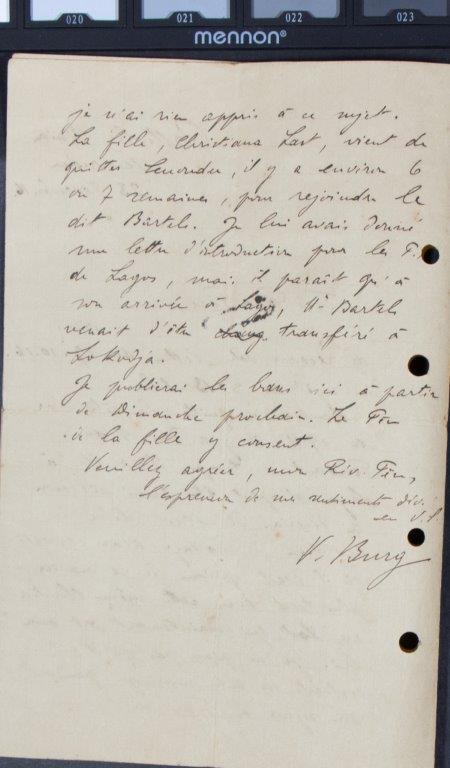 020 021 022 023
mennon®
je n'ai rien appris à ce sujet.
La fille, Christiana Last, vient de
quitter , il y a environ 6
ou 7 semaines, pour rejoindre le
dit Bartels. Je lui avais donné
une lettre d'introduction pour les
de Lagos, mais il paraît qu'à
son arrivée à Lagos, Mr Bartels
venait d'être transféré à
Lokodja.
Je publierai les bans ici à partir
de Dimanche prochain. Le
de la fille y consent.
Veuillez agréer, mon Rév. Père,
l'expression de mes sentiments dév.
en
V. Burg